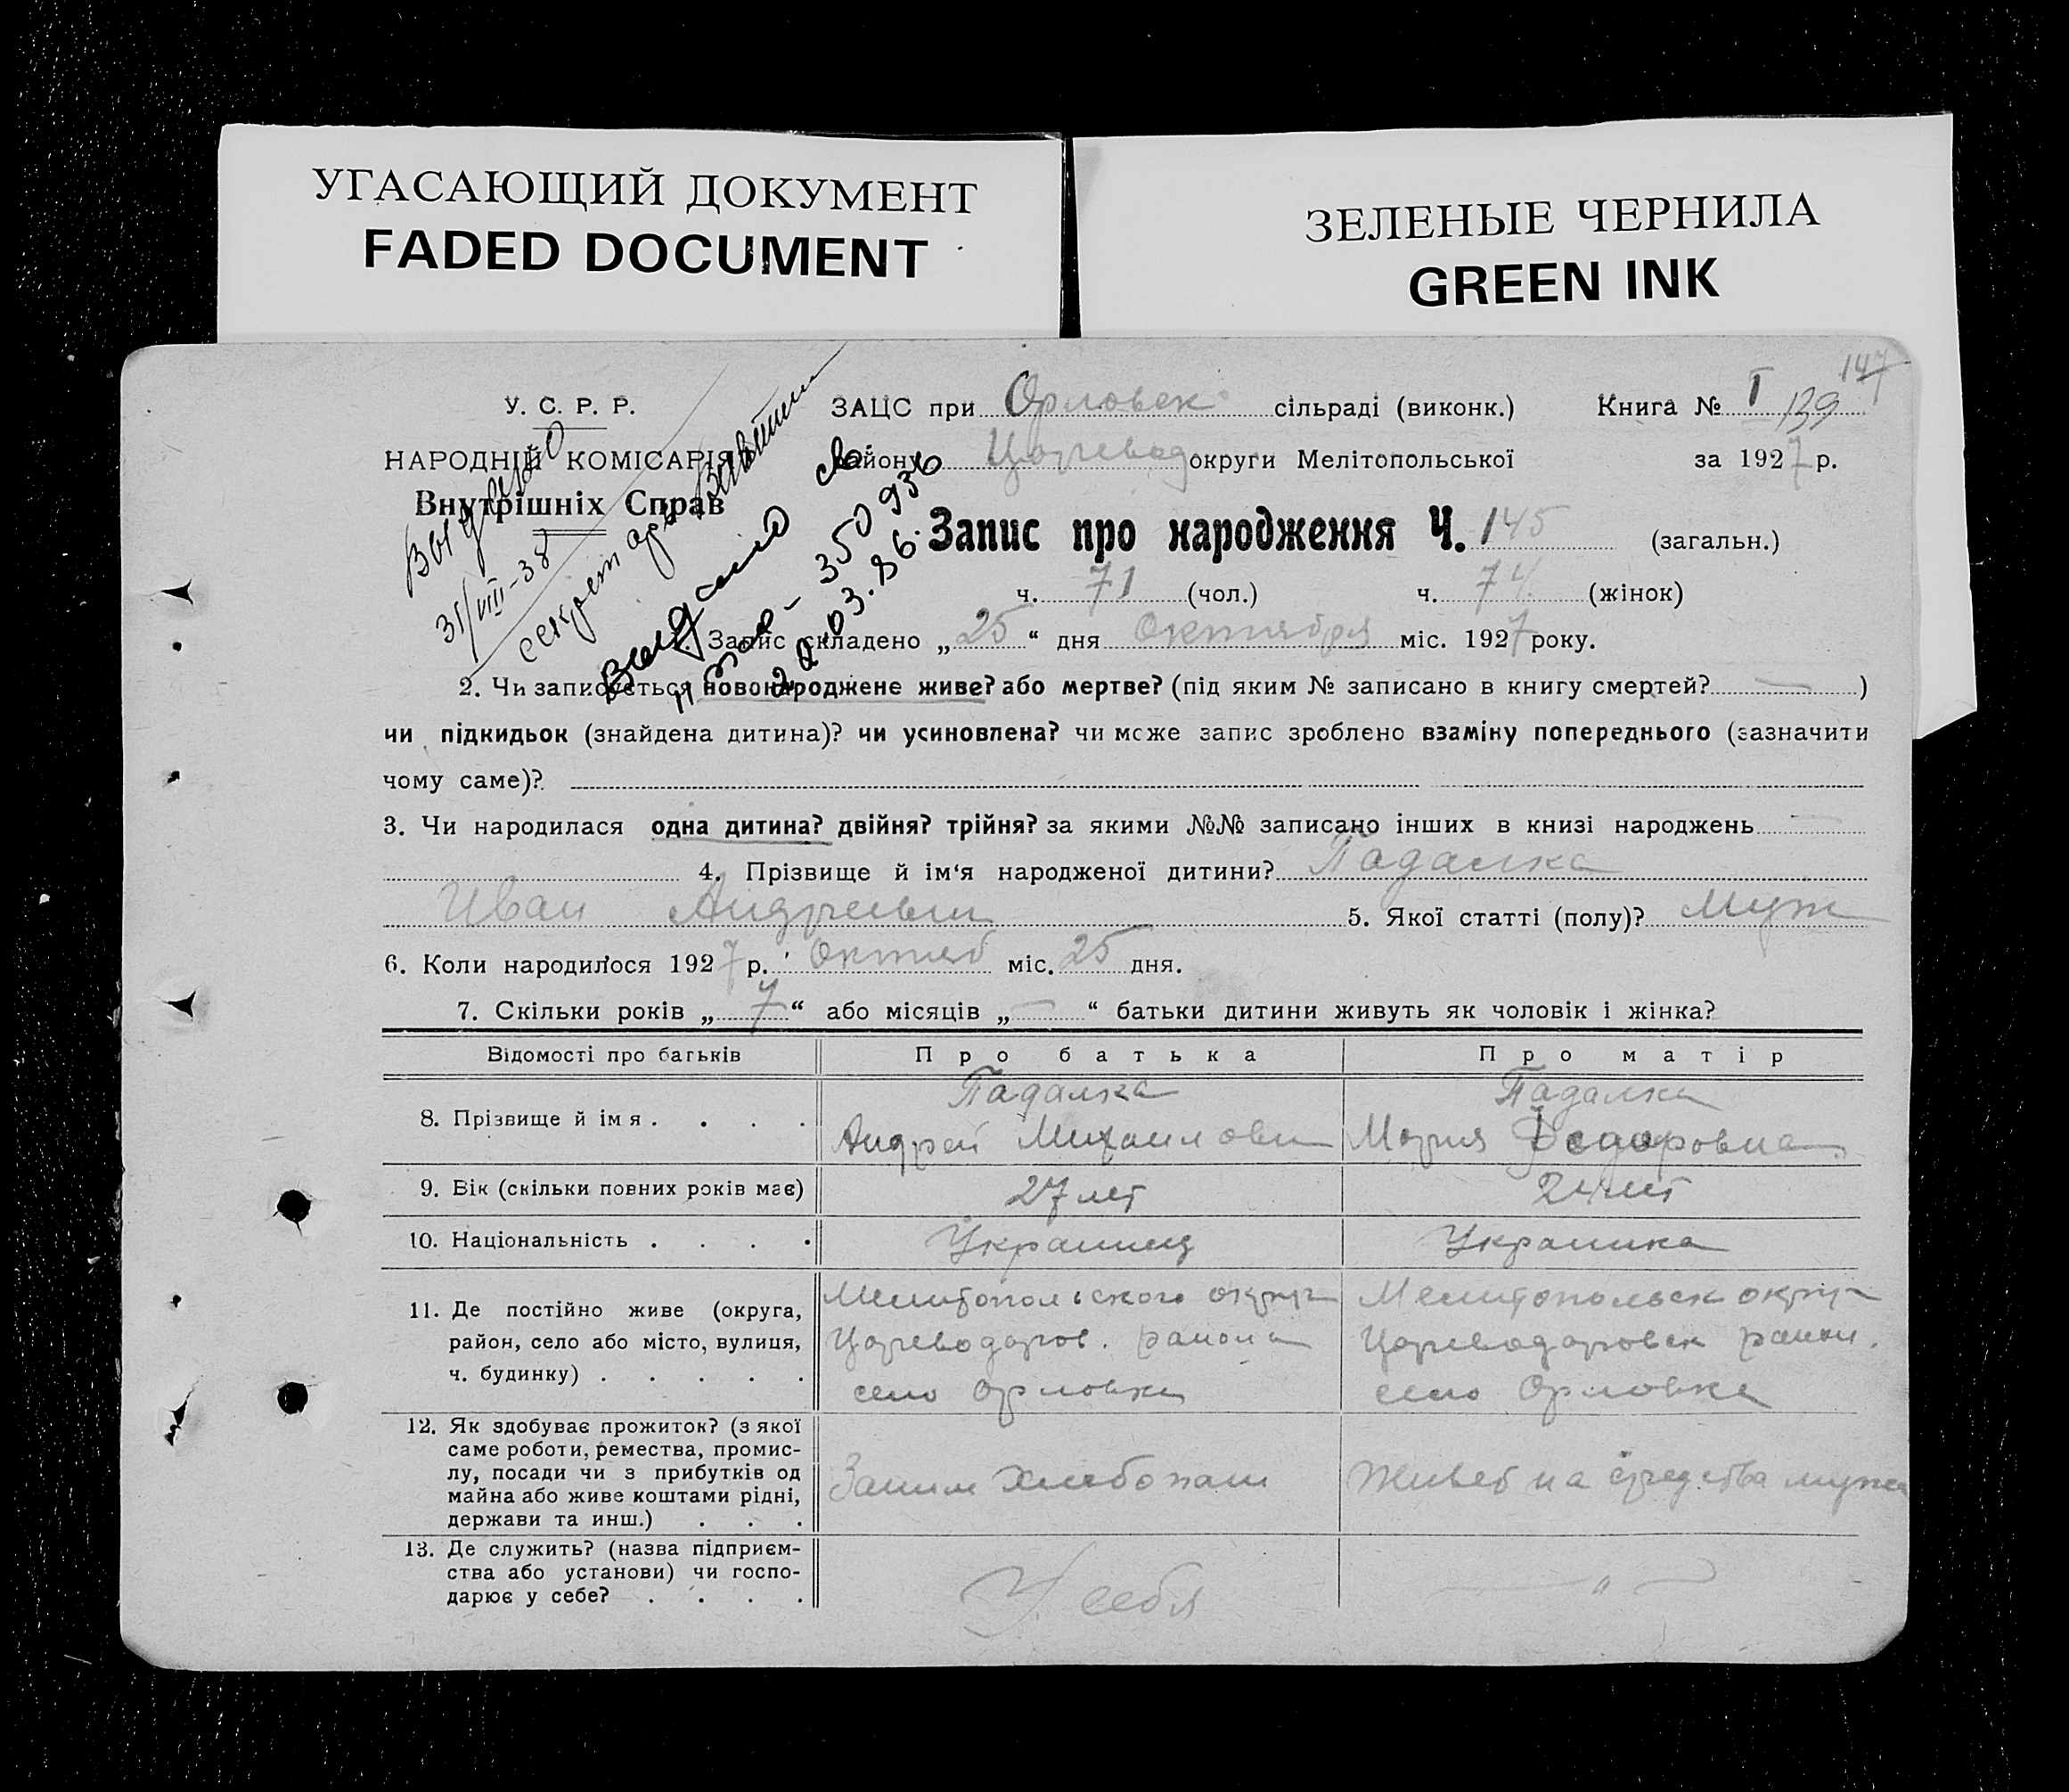 УГАСАЮЩИЙ ДОКУМЕНТ
FADED DOCUMENT
ЗЕЛЕНЫЕ ЧЕРНИЛА
GREEN INK
147
У. С. Р. Р.
НАРОДНІЙ КОМІСАРІЯТ
Внутрішніх Справ
Выдано
31/VIII-38
секретарь
Выдано св
350936
20.03.86.
ЗАЦС при Орловск сільраді (виконк.) Книга № I 139
району Царевод округи Мелітопольської за 1927 р.
Запис про народження Ч. 145 (загальн.)
ч. 71 (чол.) ч. 74 (жінок)
1. Запис складено „25“ дня Октября міс. 1927 року.
2. Чи записується новонароджене живе? або мертве? (під яким № записано в книгу смертей? — )
чи підкидьок (знайдена дитина)? чи усиновлена? чи може запис зроблено взаміну попереднього (зазначити
чому саме)?
3. Чи народилася одна дитина? двійня? трійня? за якими №№ записано інших в книзі народжень —
4. Прізвище й ім‘я народженої дитини? Падалка
Иван Андреевич 5. Якої статті (полу)? Муж
6. Коли народилося 1927 р. Октяб міс. 25 дня.
7. Скільки років „7“ або місяців „—“ батьки дитини живуть як чоловік і жінка?
Відомості про батьків Про батька Про матір
8. Прізвище й імя . . . . Падалка Падалка
Андрей Михаилович Мария Федоровна
9. Вік (скільки повних років має) 27 лет 24 лет
10. Національність . . . . Украинец Украинка
11. Де постійно живе (округа, Мелитопольского округа Мелитопольск округа
район, село або місто, вулиця, Цареводаров. района Цареводаровск район.
ч. будинку) . . . . . село Орловка село Орловка
12. Як здобуває прожиток? (з якої
саме роботи, ремества, промис-
лу, посади чи з прибутків од Заним Хлебопаш Живет на средства мужа
майна або живе коштами рідні,
держави та инш.) . . .
13. Де служить? (назва підприєм-
ства або установи) чи госпо- У себя — „ —
дарює у себе? . . . .